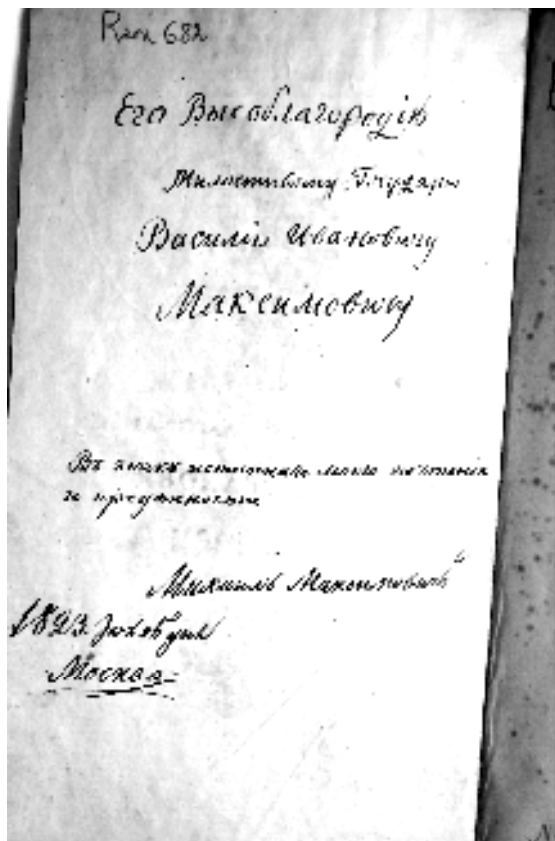 Rоза 682
Его Высоблагородію
Милостивому Государю
Василію Ивановичу
Максимовичу
Въ знакъ истиннаго моего почтенія
и преданности
Михаилъ Максимовичъ
1823. года дня
Москва